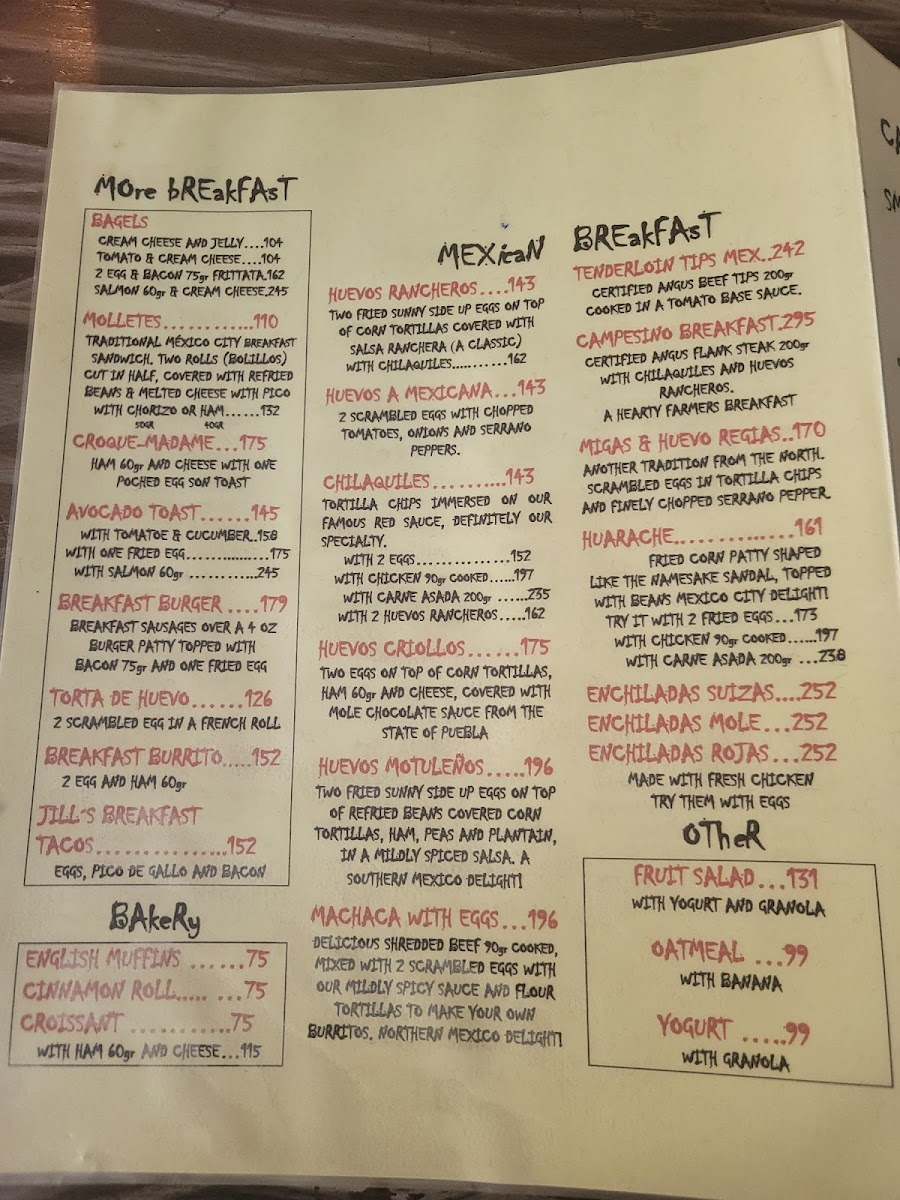 MOre bREakFAsT
BAGELS
CREAM CHEESE AND JELLY....104
TOMATO & CREAM CHEESE....104
2 EGG & BACON 75gr FRITTATA.162
SALMON 60gr & CREAM CHEESE.245
MOLLETES...........110
TRADITIONAL MÉXICO CITY BREAKFAST
SANDWICH. TWO ROLLS (BOLILLOS)
CUT IN HALF, COVERED WITH REFRIED
BEANS & MELTED CHEESE WITH PICO
WITH CHORIZO OR HAM......132
50GR 40GR
CROQUE-MADAME...175
HAM 60gr AND CHEESE WITH ONE
POCHED EGG SON TOAST
AVOCADO TOAST.......145
WITH TOMATOE & CUCUMBER..158
WITH ONE FRIED EGG..............175
WITH SALMON 60gr ...........245
BREAKFAST BURGER .....179
BREAKFAST SAUSAGES OVER A 4 OZ
BURGER PATTY TOPPED WITH
BACON 75gr AND ONE FRIED EGG
TORTA DE HUEVO......126
2 SCRAMBLED EGG IN A FRENCH ROLL
BREAKFAST BURRITO.....152
2 EGG AND HAM 60gr
JILL´S BREAKFAST
TACOS...............152
EGGS, PICO DE GALLO AND BACON
BAkeRy
ENGLISH MUFFINS ......75
CINNAMON ROLL..... ...75
CROISSANT ...........75
WITH HAM 60gr AND CHEESE...115
MEXicaN BREakFAsT
HUEVOS RANCHEROS....143
TWO FRIED SUNNY SIDE UP EGGS ON TOP
OF CORN TORTILLAS COVERED WITH
SALSA RANCHERA (A CLASSIC)
WITH CHILAQUILES...........162
HUEVOS A MEXICANA...143
2 SCRAMBLED EGGS WITH CHOPPED
TOMATOES, ONIONS AND SERRANO
PEPPERS.
CHILAQUILES..........143
TORTILLA CHIPS IMMERSED ON OUR
FAMOUS RED SAUCE, DEFINITELY OUR
SPECIALTY.
WITH 2 EGGS................152
WITH CHICKEN 90gr COOKED......197
WITH CARNE ASADA 200gr ......235
WITH 2 HUEVOS RANCHEROS.....162
HUEVOS CRIOLLOS......175
TWO EGGS ON TOP OF CORN TORTILLAS,
HAM 60gr AND CHEESE, COVERED WITH
MOLE CHOCOLATE SAUCE FROM THE
STATE OF PUEBLA
HUEVOS MOTULEÑOS.....196
TWO FRIED SUNNY SIDE UP EGGS ON TOP
OF REFRIED BEANS COVERED CORN
TORTILLAS, HAM, PEAS AND PLANTAIN,
IN A MILDLY SPICED SALSA. A
SOUTHERN MEXICO DELIGHT!
MACHACA WITH EGGS...196
DELICIOUS SHREDDED BEEF 90gr COOKED,
MIXED WITH 2 SCRAMBLED EGGS WITH
OUR MILDLY SPICY SAUCE AND FLOUR
TORTILLAS TO MAKE YOUR OWN
BURRITOS. NORTHERN MEXICO DELIGHT!
TENDERLOIN TIPS MEX..242
CERTIFIED ANGUS BEEF TIPS 200gr
COOKED IN A TOMATO BASE SAUCE.
CAMPESINO BREAKFAST.295
CERTIFIED ANGUS FLANK STEAK 200gr
WITH CHILAQUILES AND HUEVOS
RANCHEROS.
A HEARTY FARMERS BREAKFAST
MIGAS & HUEVO REGIAS..170
ANOTHER TRADITION FROM THE NORTH.
SCRAMBLED EGGS IN TORTILLA CHIPS
AND FINELY CHOPPED SERRANO PEPPER.
HUARACHE..............161
FRIED CORN PATTY SHAPED
LIKE THE NAMESAKE SANDAL, TOPPED
WITH BEANS MEXICO CITY DELIGHT!
TRY IT WITH 2 FRIED EGGS...173
WITH CHICKEN 90gr COOKED......197
WITH CARNE ASADA 200gr ...238
ENCHILADAS SUIZAS....252
ENCHILADAS MOLE...252
ENCHILADAS ROJAS...252
MADE WITH FRESH CHICKEN
TRY THEM WITH EGGS
OTheR
FRUIT SALAD...131
WITH YOGURT AND GRANOLA
OATMEAL ...99
WITH BANANA
YOGURT .....99
WITH GRANOLA